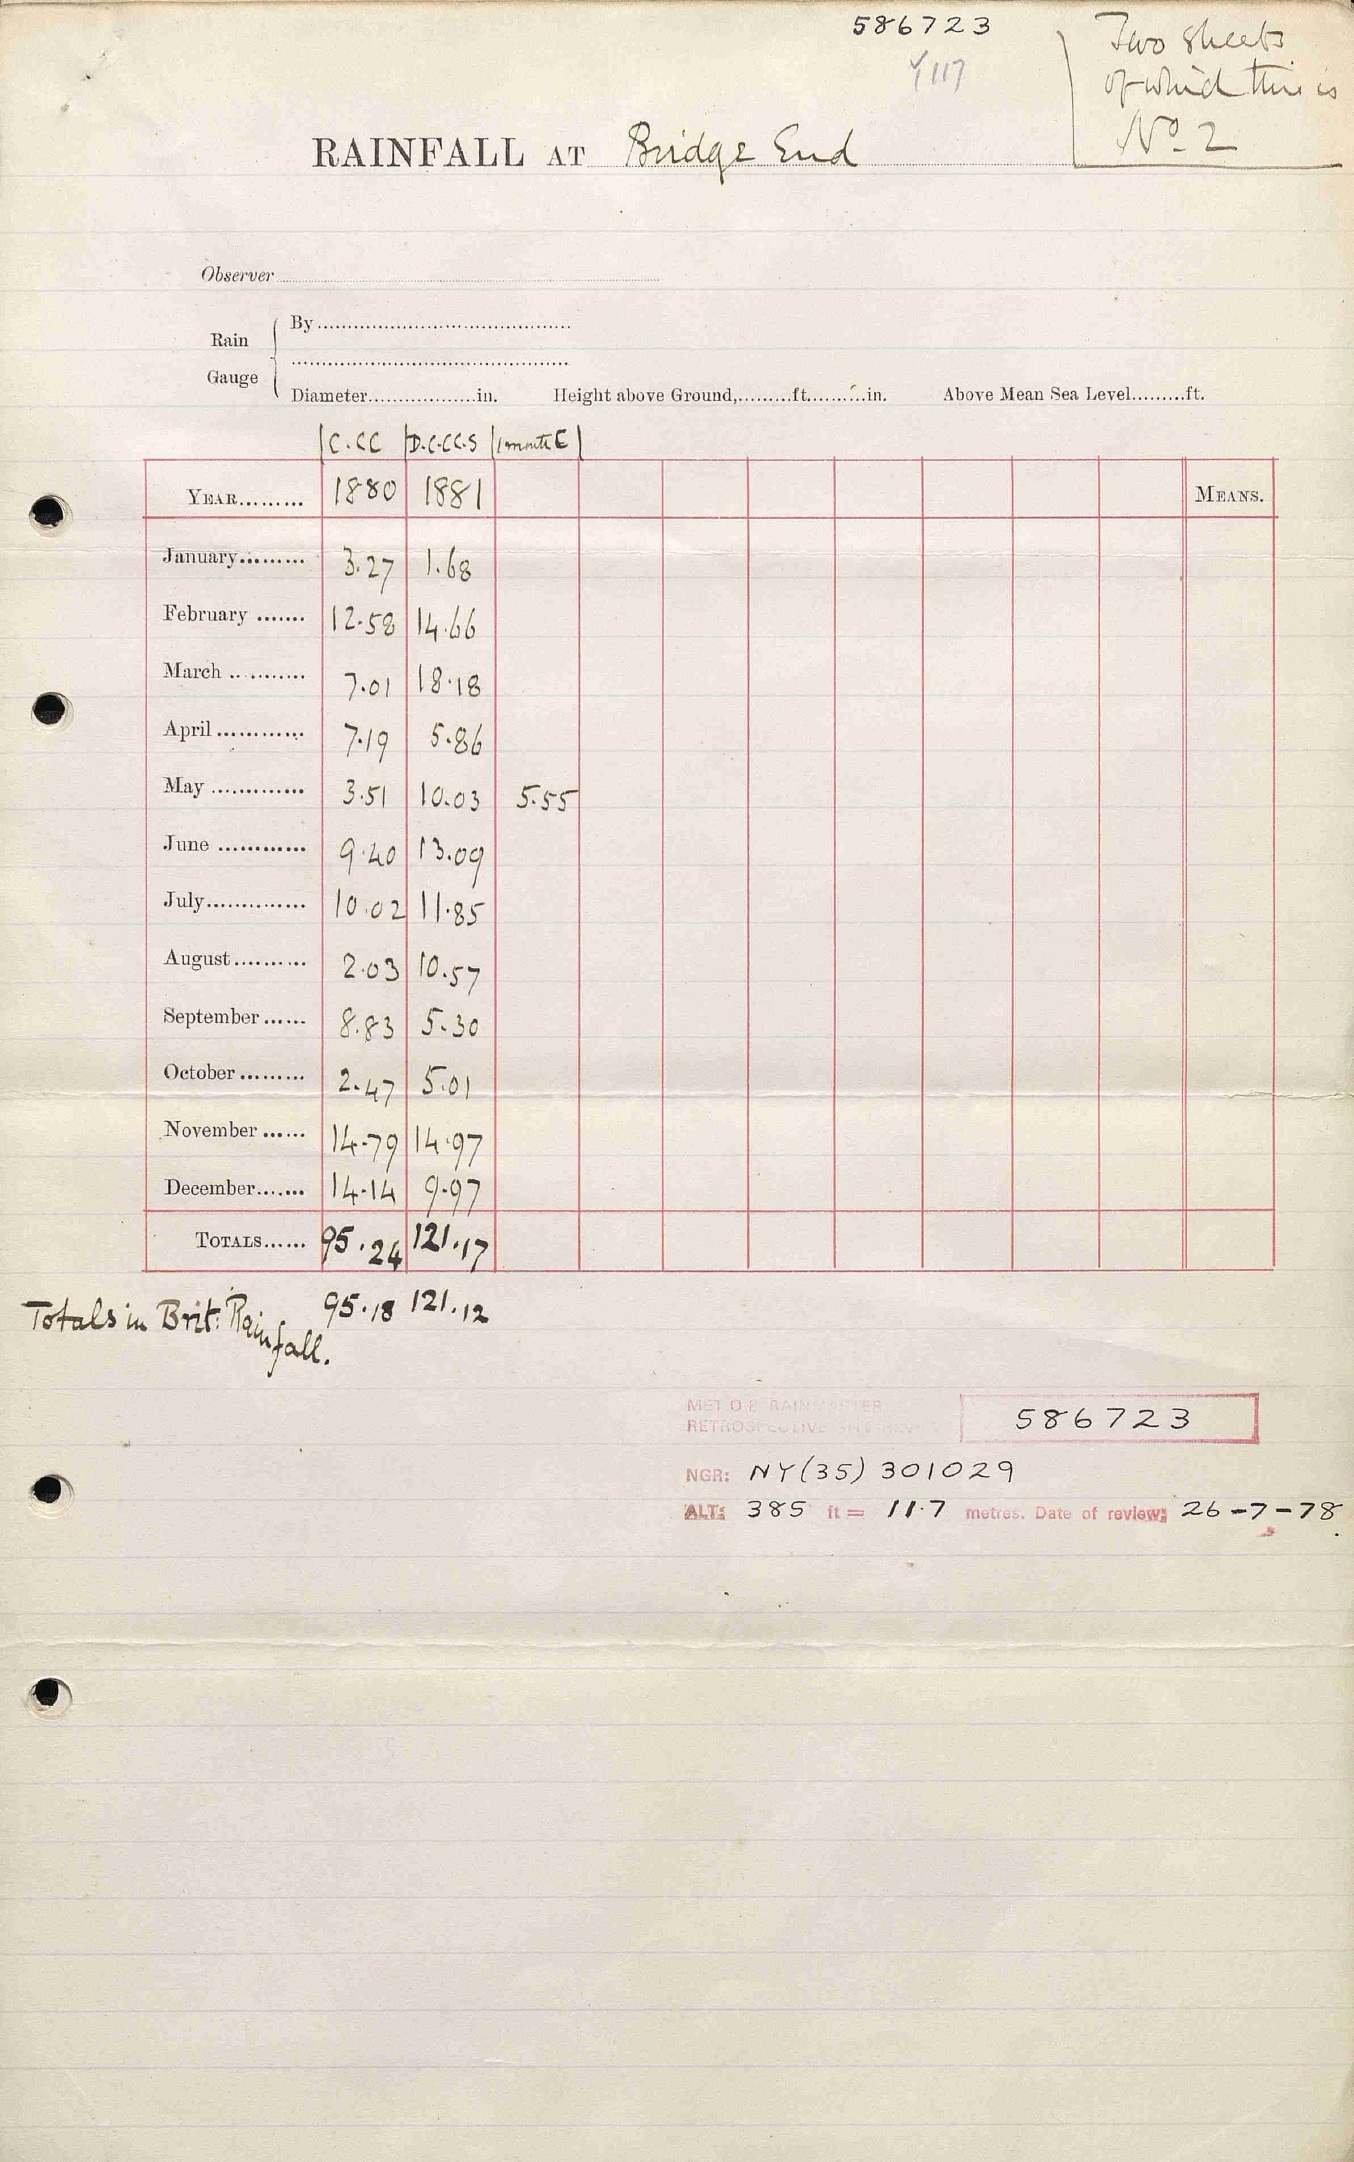 586723
Y117
Two sheets
of which this is
No. 2
RAINFALL AT Bridge End
Observer
Rain Gauge
By
Diameter.................in. Height above Ground,.........ft..........in. Above Mean Sea Level.........ft.
C.CC D.C.CC.S 1 month E
YEAR......... 1880 1881 MEANS.
January......... 3.27 1.68
February ....... 12.58 14.66
March ........... 7.01 18.18
April ............ 7.19 5.86
May ............. 3.51 10.03 5.55
June ............ 9.40 13.09
July.............. 10.02 11.85
August.......... 2.03 10.57
September ...... 8.83 5.30
October ......... 2.47 5.01
November ...... 14.79 14.97
December....... 14.14 9.97
TOTALS...... 95.24 121.17
Totals in Brit: Rainfall. 95.18 121.12
MET O 8 RAINMASTER
RETROSPECTIVE 586723
NGR: NY(35) 301029
ALT: 385 ft = 11.7 metres. Date of review: 26-7-78